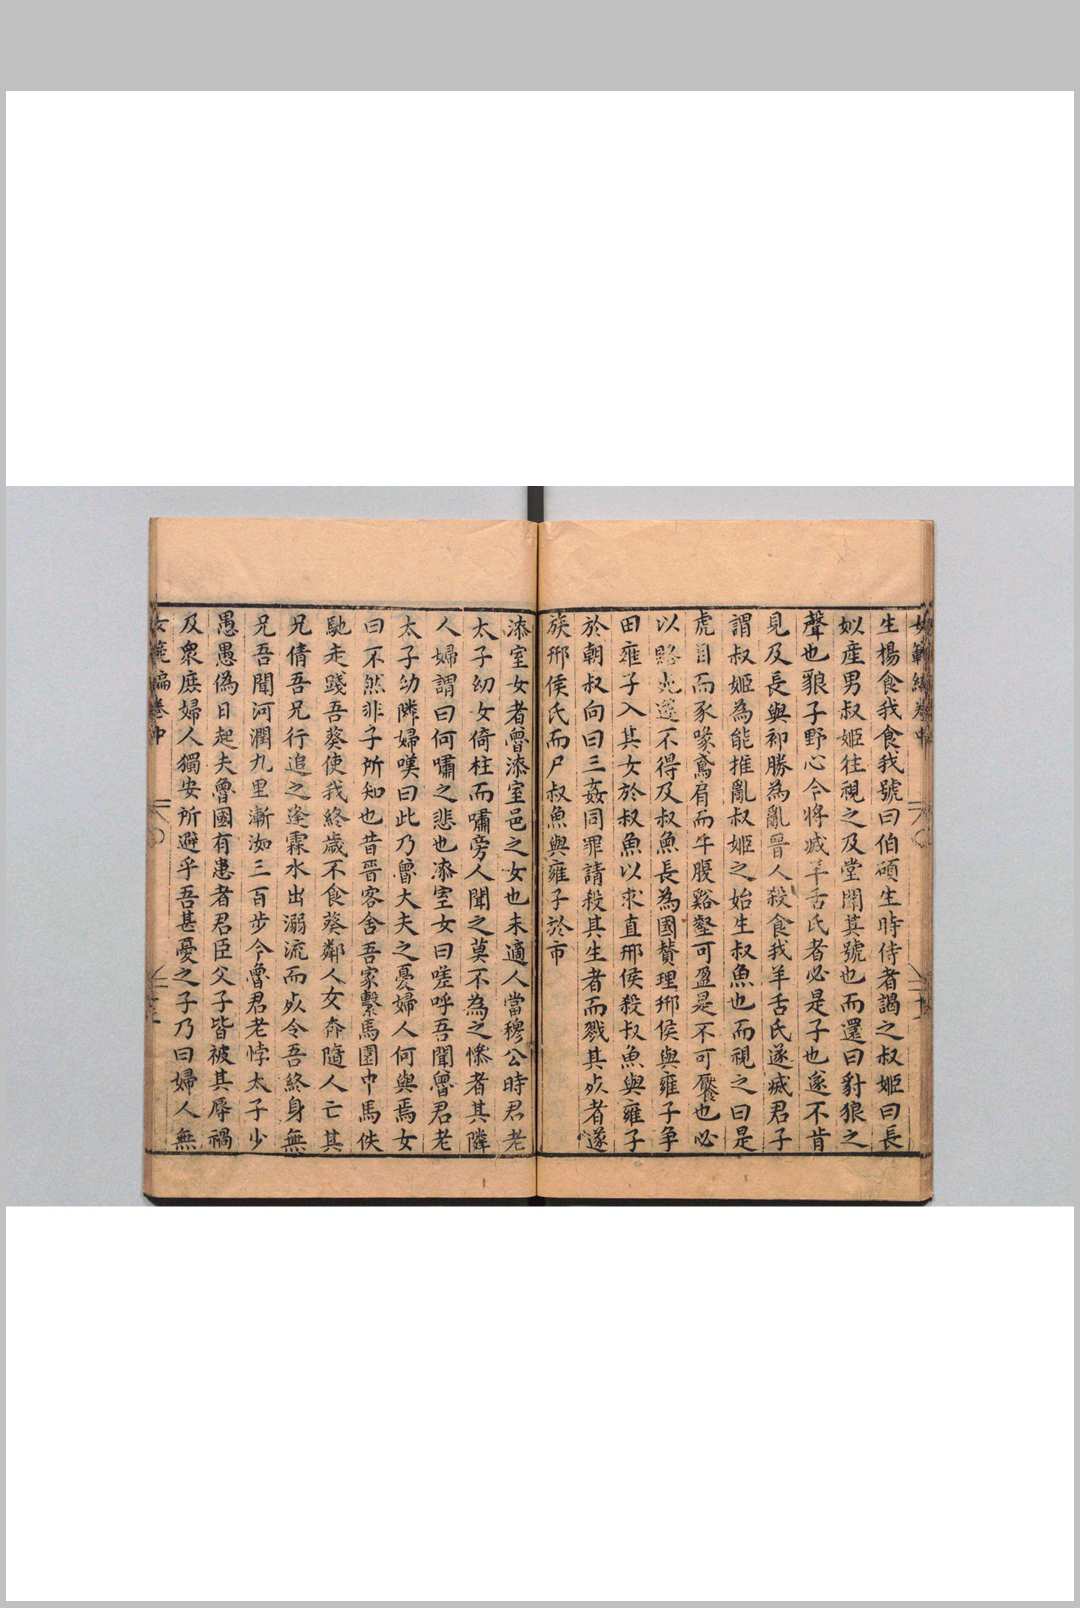 生楊食我食我號曰伯碩生時侍者謁之叔姬曰長
姒產男叔姬往視之及堂聞其號也而還曰豺狼之
聲也狼子野心今將滅羊舌氏者必是子也遂不肯
見及長與祁勝為亂晉人殺食我羊舌氏遂滅君子
謂叔姬為能推亂叔姬之始生叔魚也而視之曰是
虎目而豕喙鳶肩而牛腹谿壑可盈是不可饜也必
以賂死遂不得及叔魚長為國贊理邢侯與雍子争
田雍子入其女於叔魚以求直邢侯殺叔魚與雍子
於朝叔向曰三姦同罪請殺其生者而戮其死者遂
族邢侯氏而尸叔魚與雍子於市
漆室女者魯漆室邑之女也未適人當穆公時君老
太子幼女倚柱而嘯旁人聞之莫不為之慘者其隣
人婦謂曰何嘯之悲也漆室女曰嗟呼吾聞魯君老
太子幼隣婦嘆曰此乃魯大夫之憂婦人何與焉女
曰不然非子所知也昔晉客舍吾家繫馬園中馬佚
馳走踐吾葵使我終歲不食葵鄰人女奔隨人亡其
兄倩吾兄行追之逢霖水出溺流而死令吾終身無
兄吾聞河潤九里漸洳三百步今魯君老悖太子少
愚愚偽日起夫魯國有患者君臣父子皆被其辱禍
及衆庶婦人獨安所避乎吾甚憂之子乃曰婦人無
女範編卷中